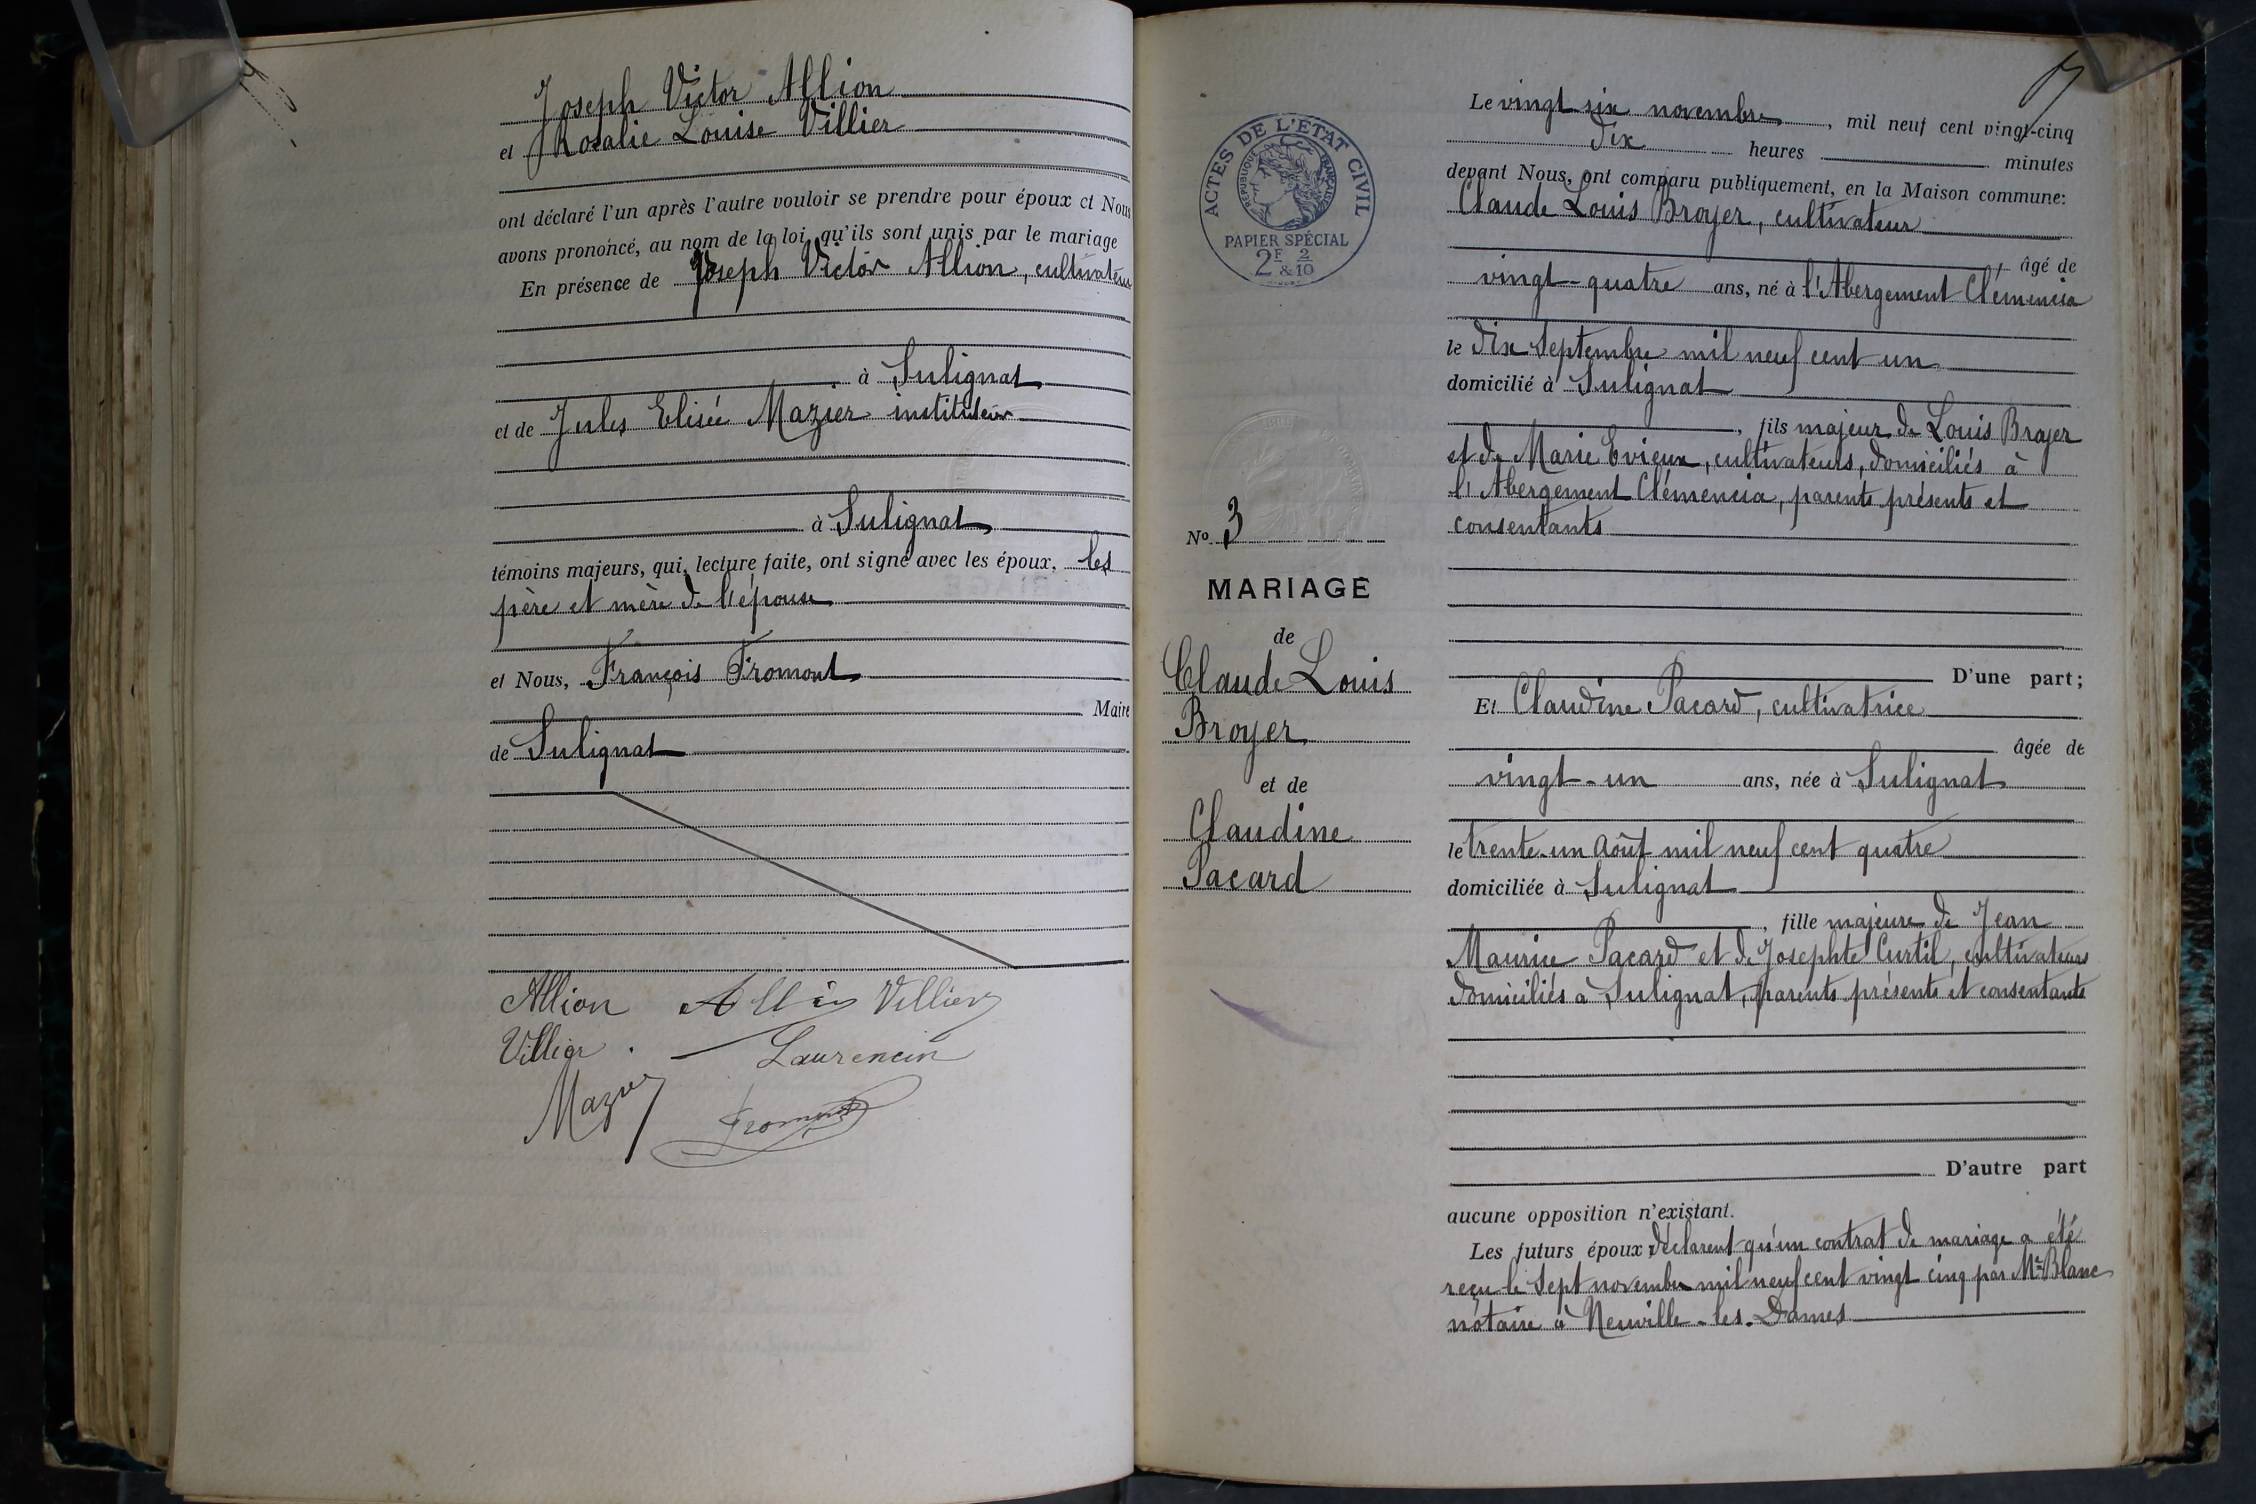 Joseph Victor Allion
et Rosalie Louise Villier
ont déclaré l'un après l'autre vouloir se prendre pour époux et Nous
avons prononcé, au nom de la loi, qu'ils sont unis par le mariage
En présence de Joseph Victor Allion, cultivateur
à Sulignat
et de Jules Elisée Mazuer instituteur
à Sulignat
témoins majeurs, qui, lecture faite, ont signé avec les époux, les
père et mère de l'épouse
et Nous, François Fromont
Maire
de Sulignat
Allion Allion Villier
Villier Laurencin
Mazuer Fromont
ACTES DE L'ÉTAT CIVIL
RÉPUBLIQUE FRANÇAISE
PAPIER SPÉCIAL
2F & 2/10
No 3
MARIAGE
de
Claude Louis
Broyer
et de
Claudine
Pacard
Le vingt six novembre, mil neuf cent vingt-cinq
dix heures minutes
devant Nous, ont comparu publiquement, en la Maison commune:
Claude Louis Broyer, cultivateur
, âgé de
vingt-quatre ans, né à l'Abergement Clémencia
le dix septembre mil neuf cent un
domicilié à Sulignat
, fils majeur de Louis Broyer
et de Marie Evieux, cultivateurs, domiciliés à
l'Abergement Clémencia, parents présents et
consentants
D'une part;
Et Claudine Pacard, cultivatrice
âgée de
vingt-un ans, née à Sulignat
le trente-un août mil neuf cent quatre
domiciliée à Sulignat
, fille majeure de Jean
Maurice Pacard et de Josephte Curtil, cultivateurs
domiciliés à Sulignat, parents présents et consentants
D'autre part
aucune opposition n'existant.
Les futurs époux déclarent qu'un contrat de mariage a été
reçu le sept novembre mil neuf cent vingt cinq par Me Blanc
notaire à Neuville-les-Dames